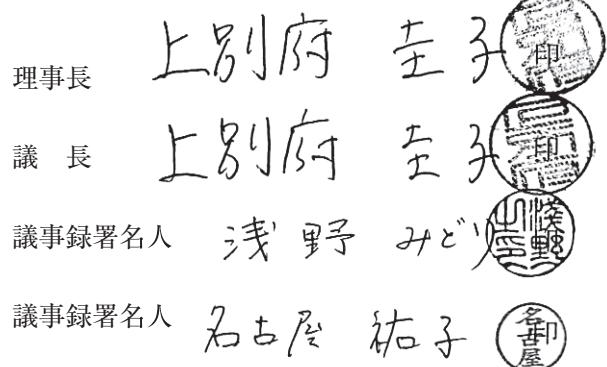 理事長 上別府 圭子 印
議 長 上別府 圭子 印
議事録署名人 浅野 みどり
議事録署名人 名古屋 祐子 名古屋 印